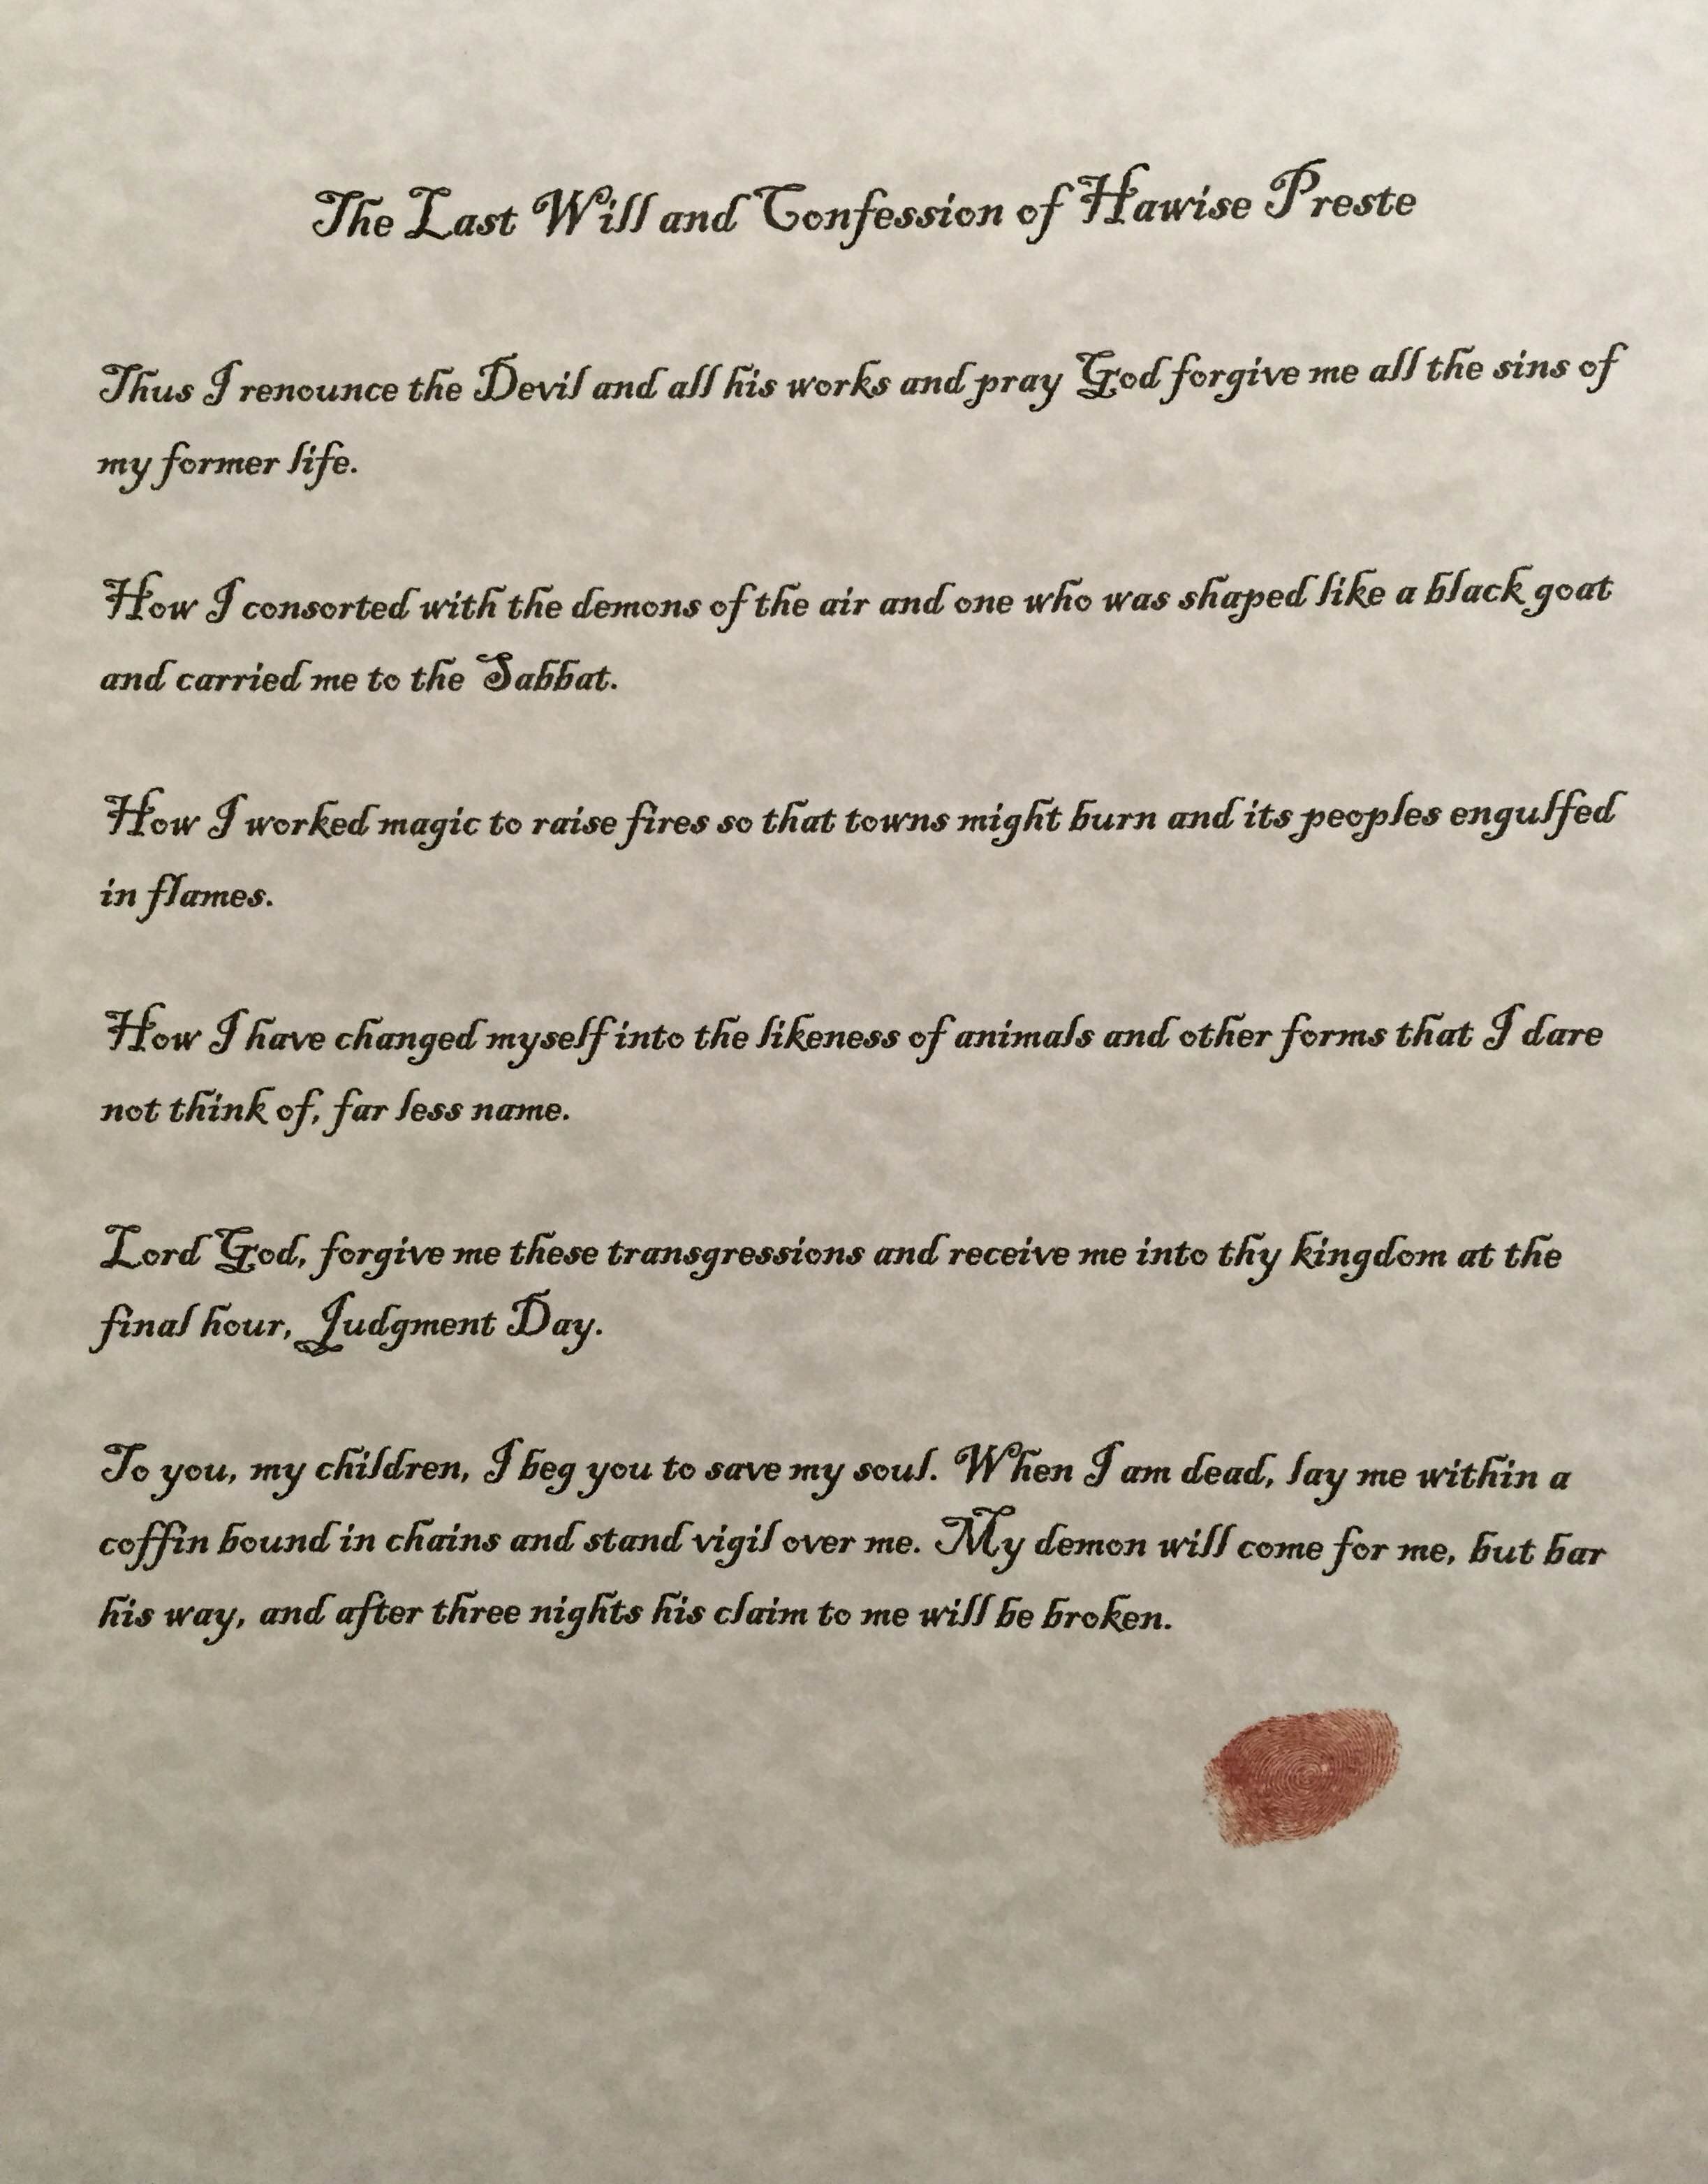 The Last Will and Confession of Hawise Preste
Thus I renounce the Devil and all his works and pray God forgive me all the sins of
my former life.
How I consorted with the demons of the air and one who was shaped like a black goat
and carried me to the Sabbat.
How I worked magic to raise fires so that towns might burn and its peoples engulfed
in flames.
How I have changed myself into the likeness of animals and other forms that I dare
not think of, far less name.
Lord God, forgive me these transgressions and receive me into thy kingdom at the
final hour, Judgment Day.
To you, my children, I beg you to save my soul. When I am dead, lay me within a
coffin bound in chains and stand vigil over me. My demon will come for me, but bar
his way, and after three nights his claim to me will be broken.